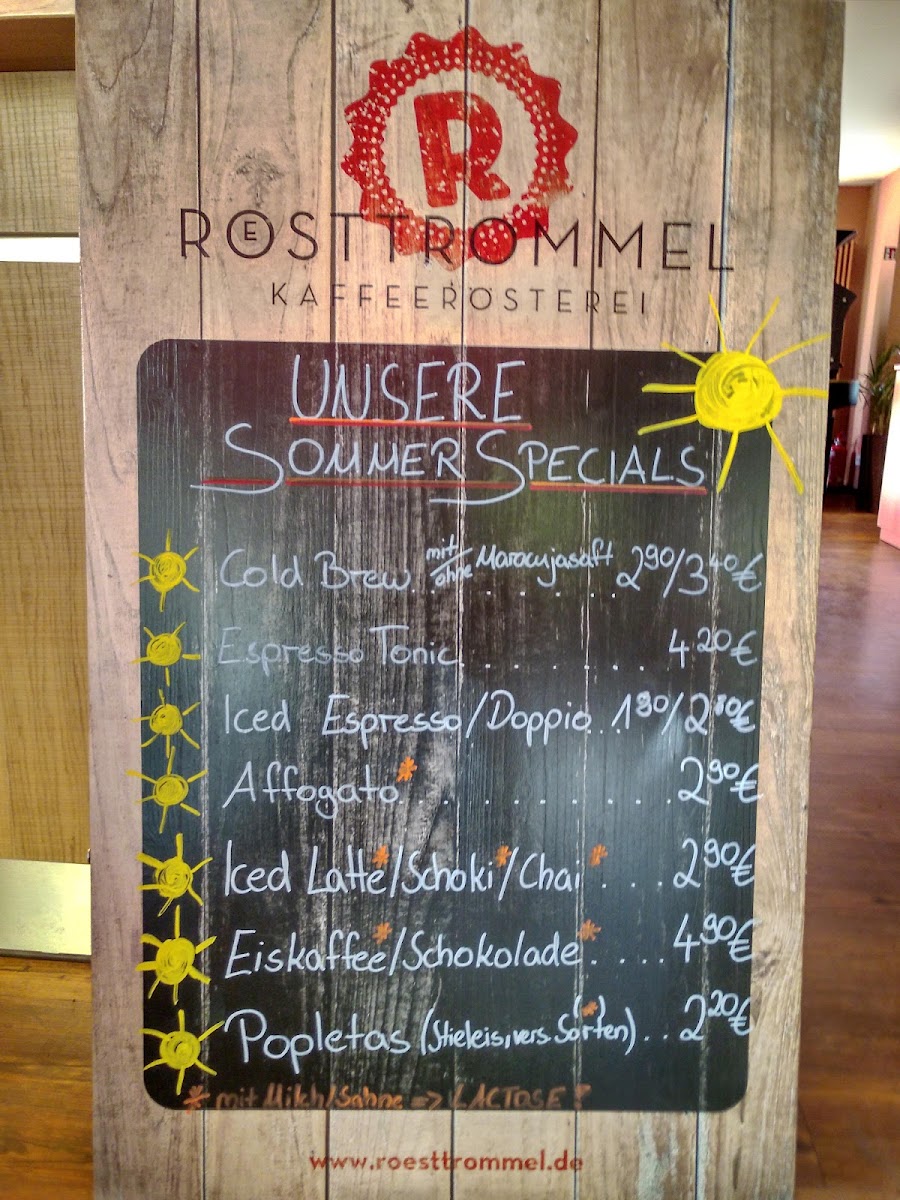 R
RÖSTTROMMEL
KAFFEERÖSTEREI
UNSERE
SOMMER SPECIALS
Cold Brew mit/ohne Maracujasaft 2⁹⁰/3⁴⁰€
Espresso Tonic........ 4²⁰€
Iced Espresso/Doppio...1⁹⁰/2⁸⁰€
Affogato*........... 2⁹⁰€
Iced Latte*/Schoki*/Chai*.... 2⁹⁰€
Eiskaffee*/Schokolade*.... 4⁹⁰€
Popletas (Stieleis, vers. Sorten)*.. 2²⁰€
* mit Milch/Sahne => LACTOSE!
www.roesttrommel.de